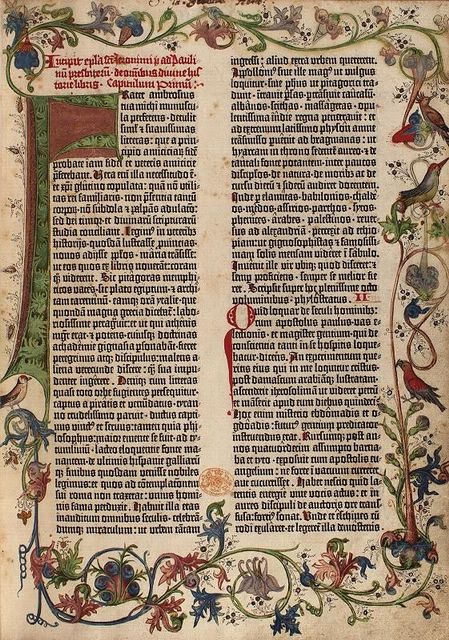 Incipit epl̃a sancti iheronimi ad Pauli-
nũ presbiterũ: de omnibus diuine his-
torie libris. Capitulum Primũ:
Frater ambrosius
tua michi munuscu-
la preferens. detulit
simul & suauissimas
litteras: que a prin-
cipio amiciciarũ fidẽ
probate iam fidei et veteris amicicie
preferebant. Vera enĩ illa necessitudo ẽ.
et xp̃i glutino copulata: quã nõ utili-
tas rei familiaris. nõ presentia tantũ
corporũ. nõ subdola & palpãs adulatio:
sed dei timor. et diuinarũ scripturarũ
studia conciliant. Legimus ĩ veteribꝫ
historijs. quosdã lustrasse ꝓuincias.
nouos adijsse ppl̃os. maria trãsisse:
ut eos quos ex libris nouerãt. coram
qꝫ viderẽt. Sic pitagoras memphi-
ticos vates. sic plato egiptũ. & archi-
tam tarentinũ. eamqꝫ orã ytalie. que
quondã magna grecia diceb̃: labo-
riosissime peragrauit: et ut qui athenis
mgr̃ erat. & potens. cuiusqꝫ doctrinas
achademie gignasia ꝑsonabãt. fieret
peregrinus atqꝫ discipulus: malens a-
liena verecunde discere: qꝫ̃ sua impu-
denter ingerere. Deniqꝫ cum litteras
quasi toto orbe fugientes ꝑsequitur.
captus a piratis et venundatus. tiran-
no crudelissimo paruit. ductus captiuus
vinctus et seruus: tamen quia phi-
losophus: maior emente se fuit. ad ty-
tumliuiũ. lacteo eloquentie fonte ma-
nantem. de ultimis hispanie galliarũ-
qꝫ finibus quosdam venisse nobiles
legimus: et quos ad cõtemplationẽ
sui roma non traxerat: unius homi-
nis fama perduxit. Habuit illa etas
inauditum omnibus seculis. celebrã-
dumqꝫ miraculum: ut urbem tãtam
ingressi: aliud extra urbem quererent.
Apollonius siue ille magus ut vulgus
loquitur. siue ph̃us ut pitagorici tra-
dunt. intrauit ꝑsas. ptrãsiuit caucasũ.
albanos. scithas. massagetas. opu-
lentissima indie regna penetrauit: et
ad extremum latissimo physon amne
trãsmisso puenit ad bragmanas: ut
hyarcam in throno sedentẽ aureo. & de
tantali fonte potantem. inter paucos
discipl̃os. de natura. de moribꝫ ac de
cursu dierũ & siderũ audiret docentem.
Inde ꝑ elamitas. babilonios. chalde-
os. medos. assirios. parthos. syros.
phenices. arabes. palestinos. reuer-
sus ad alexandriã. perrexit ad ethio-
piam: ut gignosophistas & famosissi-
mam solis mensam videret ĩ sabulo.
Inuenit ille vir ubiqꝫ quod disceret: et
semp proficiens. semper se melior fie-
ret. Scripsit super hoc plenissime octo
voluminibus. phylostratus. II
Quid loquar de seculi hominibꝫ:
cum apostolus paulus. vas e-
lectionis. et magister gentium. qui de
consciencia tanti in se hospitis loque-
batur. dicens. An experimentum que-
ritis eius qui in me loquitur cristus:
post damascum arabiãqꝫ lustratam:
ascenderit iherosolimã ut videret petrũ
et mãserit apud eum diebus quindecĩ.
Hoc enim misterio ebdomadis et og-
doadis: futurus gentium predicator
instruendus erat. Rursumqꝫ post an-
nos quatuordecim assumpto barna-
ba et tyto. exposuit cum apostolis eu-
angelium: ne forte ĩ vacuum curreret
aut cucurrisset. Habet nescio quid la-
tentis energie viue vocis actus: et in
aures discipuli de auctoris ore trans-
fusa: fortius sonat. Unde et eschines cũ
rodi exularet. et legeretur illa demostenis